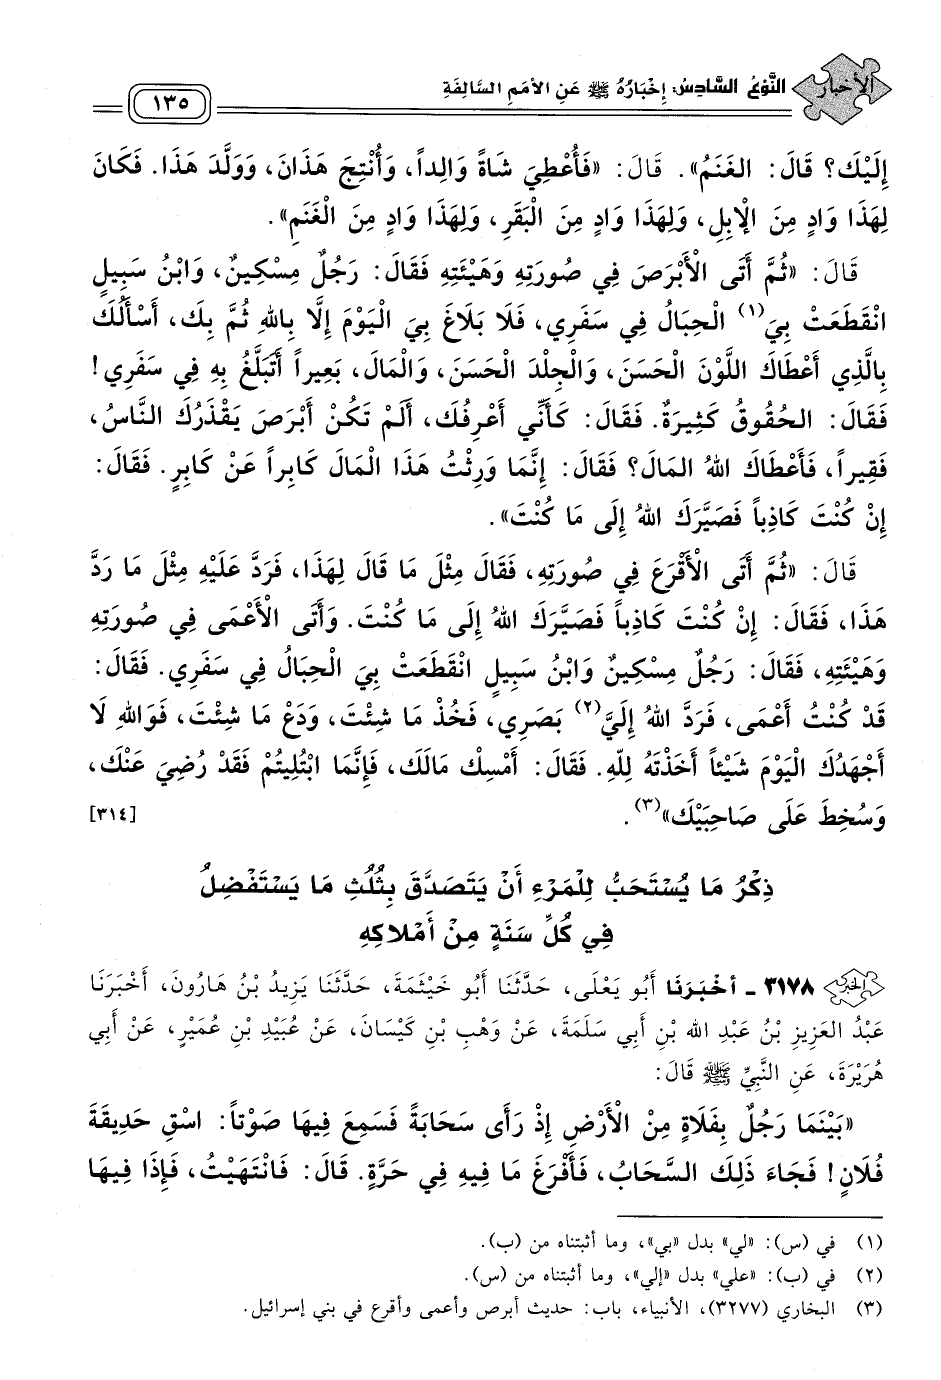 الأخبار
النَّوْعُ السَّادِسُ: إِخْبَارُهُ ﷺ عَنِ الأُمَمِ السَّالِفَةِ
١٣٥
إِلَيْكَ؟ قَالَ: الغَنَمُ». قَالَ: «فَأُعْطِيَ شَاةً وَالِداً، وَأُنْتِجَ هَذَانَ، وَوَلَّدَ هَذَا. فَكَانَ
لِهَذَا وَادٍ مِنَ الْإِبِلِ، وَلِهَذَا وَادٍ مِنَ الْبَقَرِ، وَلِهَذَا وَادٍ مِنَ الْغَنَمِ».
قَالَ: «ثُمَّ أَتَى الْأَبْرَصَ فِي صُورَتِهِ وَهَيْئَتِهِ فَقَالَ: رَجُلٌ مِسْكِينٌ، وَابْنُ سَبِيلٍ
انْقَطَعَتْ بِيَ(١) الْحِبَالُ فِي سَفَرِي، فَلَا بَلَاغَ بِيَ الْيَوْمَ إِلَّا بِاللهِ ثُمَّ بِكَ، أَسْأَلُكَ
بِالَّذِي أَعْطَاكَ اللَّوْنَ الْحَسَنَ، وَالْجِلْدَ الْحَسَنَ، وَالْمَالَ، بَعِيراً أَتَبَلَّغُ بِهِ فِي سَفَرِي!
فَقَالَ: الحُقُوقُ كَثِيرَةٌ. فَقَالَ: كَأَنِّي أَعْرِفُكَ، أَلَمْ تَكُنْ أَبْرَصَ يَقْذَرُكَ النَّاسُ،
فَقِيراً، فَأَعْطَاكَ اللهُ المَالَ؟ فَقَالَ: إِنَّمَا وَرِثْتُ هَذَا الْمَالَ كَابِراً عَنْ كَابِرٍ. فَقَالَ:
إِنْ كُنْتَ كَاذِباً فَصَيَّرَكَ اللهُ إِلَى مَا كُنْتَ».
قَالَ: «ثُمَّ أَتَى الْأَقْرَعَ فِي صُورَتِهِ، فَقَالَ مِثْلَ مَا قَالَ لِهَذَا، فَرَدَّ عَلَيْهِ مِثْلَ مَا رَدَّ
هَذَا، فَقَالَ: إِنْ كُنْتَ كَاذِباً فَصَيَّرَكَ اللهُ إِلَى مَا كُنْتَ. وَأَتَى الْأَعْمَى فِي صُورَتِهِ
وَهَيْئَتِهِ، فَقَالَ: رَجُلٌ مِسْكِينٌ وَابْنُ سَبِيلٍ انْقَطَعَتْ بِيَ الْحِبَالُ فِي سَفَرِي. فَقَالَ:
قَدْ كُنْتُ أَعْمَى، فَرَدَّ اللهُ إِلَيَّ(٢) بَصَرِي، فَخُذْ مَا شِئْتَ، وَدَعْ مَا شِئْتَ، فَوَاللهِ لَا
أَجْهَدُكَ الْيَوْمَ شَيْئاً أَخَذْتَهُ لِلّهِ. فَقَالَ: أَمْسِكْ مَالَكَ، فَإِنَّمَا ابْتُلِيتُمْ فَقَدْ رُضِيَ عَنْكَ،
وَسُخِطَ عَلَى صَاحِبَيْكَ»(٣). [٣١٤]
ذِكْرُ مَا يُسْتَحَبُّ لِلْمَرْءِ أَنْ يَتَصَدَّقَ بِثُلُثِ مَا يَسْتَفْضِلُ
فِي كُلِّ سَنَةٍ مِنْ أَمْلَاكِهِ
٣١٧٨ - أَخْبَرَنَا أَبُو يَعْلَى، حَدَّثَنَا أَبُو خَيْثَمَةَ، حَدَّثَنَا يَزِيدُ بْنُ هَارُونَ، أَخْبَرَنَا
عَبْدُ العَزِيزِ بْنُ عَبْدِ الله بْنِ أَبِي سَلَمَةَ، عَنْ وَهْبِ بْنِ كَيْسَانَ، عَنْ عُبَيْدِ بْنِ عُمَيْرٍ، عَنْ أَبِي
هُرَيْرَةَ، عَنِ النَّبِيِّ ﷺ قَالَ:
«بَيْنَمَا رَجُلٌ بِفَلَاةٍ مِنْ الْأَرْضِ إِذْ رَأَى سَحَابَةً فَسَمِعَ فِيهَا صَوْتاً: اسْقِ حَدِيقَةَ
فُلَانٍ! فَجَاءَ ذَلِكَ السَّحَابُ، فَأَفْرَغَ مَا فِيهِ فِي حَرَّةٍ. قَالَ: فَانْتَهَيْتُ، فَإِذَا فِيهَا
(١) في (س): «لي» بدل «بي»، وما أثبتناه من (ب).
(٢) في (ب): «علي» بدل «إلي»، وما أثبتناه من (س).
(٣) البخاري (٣٢٧٧)، الأنبياء، باب: حديث أبرص وأعمى وأقرع في بني إسرائيل.